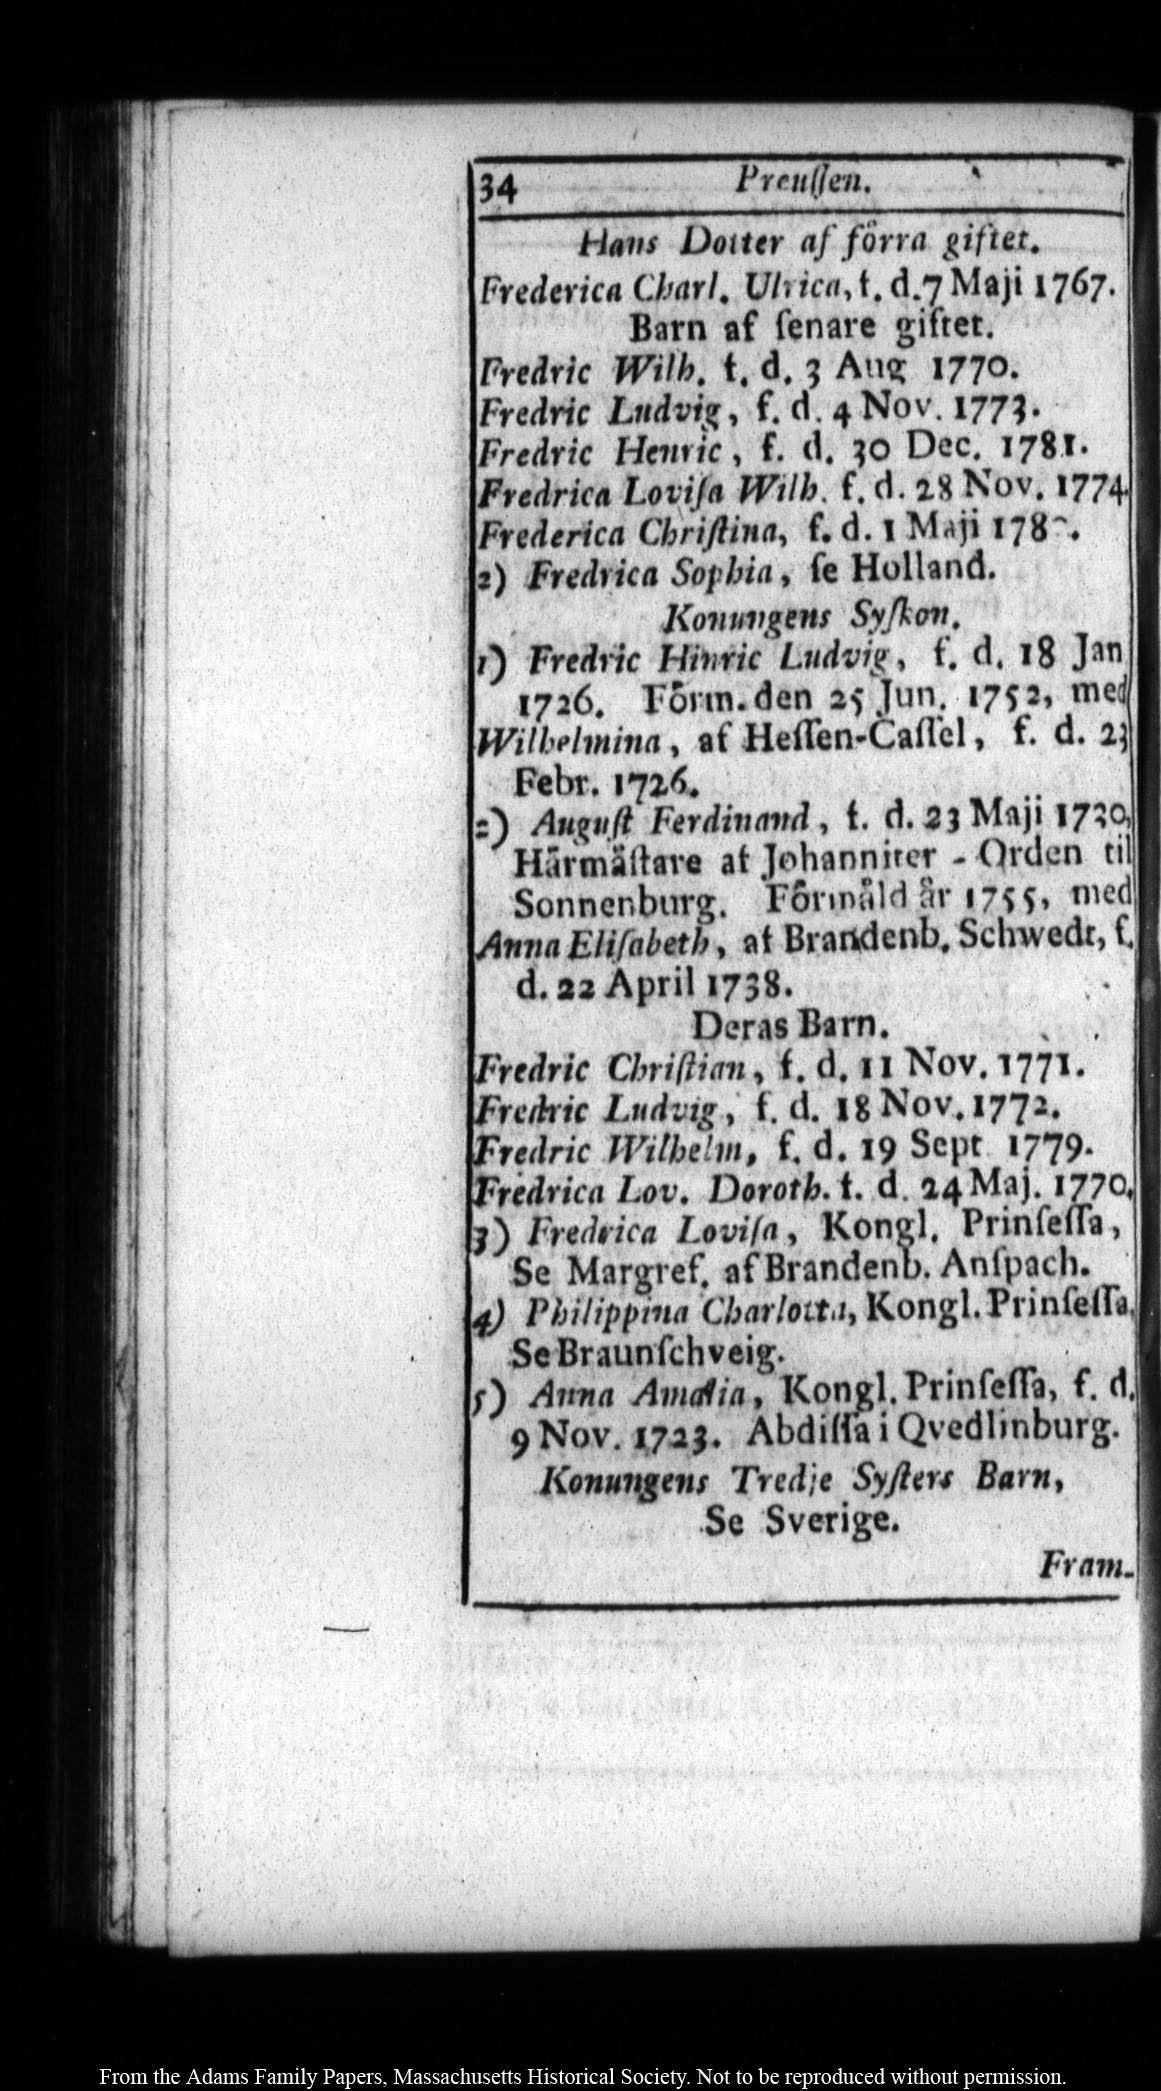 34 Preuſſen.
Hans Dotter af förra giftet.
Frederica Charl. Ulrica, f. d. 7 Maji 1767.
Barn af ſenare giftet.
Fredric Wilh. f. d. 3 Aug 1770.
Fredric Ludvig, f. d. 4 Nov. 1773.
Fredric Henric, f. d. 30 Dec. 1781.
Fredrica Loviſa Wilh. f. d. 28 Nov. 1774.
Frederica Chriſtina, f. d. 1 Maji
2) Fredrica Sophia, ſe Holland.
Konungens Syſkon.
1) Fredric Hinric Ludvig, f. d. 18 Jan
1726. Förm. den 25 Jun. 1752, med
Wilhelmina, af Heſſen-Caſſel, f. d. 23
Febr. 1726.
2) Auguſt Ferdinand, f. d. 23 Maji 1730,
Härmäſtare af Johanniter-Orden til
Sonnenburg. Förmäld år 1755, med
Anna Eliſabeth, af Brandenb. Schwedt, f.
d. 22 April 1738.
Deras Barn.
Fredric Chriſtian, f. d. 11 Nov. 1771.
Fredric Ludvig, f. d. 18 Nov. 1772.
Fredric Wilhelm, f. d. 19 Sept 1779.
Fredrica Lov. Doroth. f. d. 24 Maj. 1770.
3) Fredrica Loviſa, Kongl. Prinſeſſa,
Se Margref. af Brandenb. Anſpach.
4) Philippina Charlotta, Kongl. Prinſeſſa.
Se Braunſchveig.
5) Anna Amalia, Kongl. Prinſeſſa, f. d.
9 Nov. 1723. Abdiſſa i Qvedlinburg.
Konungens Tredje Syſters Barn,
Se Sverige.
Fram-
From the Adams Family Papers, Massachusetts Historical Society. Not to be reproduced without permission.